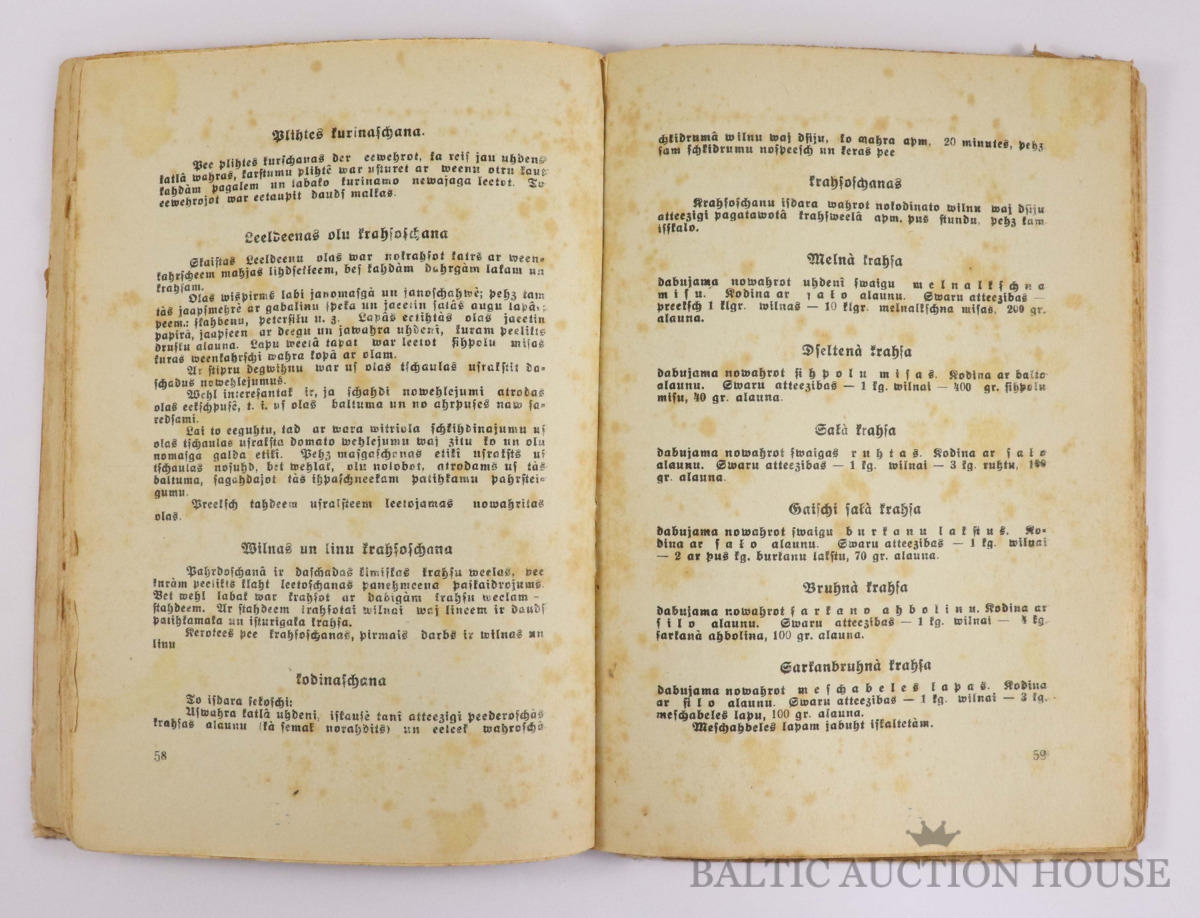 Plihtes kurinaſchana.
Pee plihtes kurſchanas der eewehrot, ka reiſ jau uhdens
katlâ wahras, karſtumu plihtê war uſturet ar weenu otru kaut
kahdàm pagalem un labako kurinamo newajaga leetot. To
eewehrojot war eetaupit daudſ malkas.
Leeldeenas olu krahſoſchana
Skaiſtas Leeldeenu olas war nokrahſot katrs ar ween-
kahrſcheem mahjas lihdſekleem, beſ kahdàm dahrgàm lakam un
krahſam.
Olas wiſpirms labi janomaſgà un janoſchahwê; pehz tam
tàs jaapſmehrê ar gabalinu ſpeka un jaeetin ſalàs augu lapâs,
peem.: ſkahbenu, peterſilu u. z. Lapàs eetihtàs olas jaeetin
papirà, jaapſeen ar deegu un jawahra uhdenî, kuram peelikts
druſku alauna. Lapu weetâ tapat war leetot ſihpolu miſas
kuras weenkahrſchi wahra kopâ ar olam.
Ar ſtipru degwihnu war uſ olas tſchaulas uſrakſtit da-
ſchadus nowehlejumus.
Wehl intereſantak ir, ja ſchahdi nowehlejumi atrodas
olas eekſchpuſê, t. i. uſ olas baltuma un no ahrpuſes naw ſa-
redſami.
Lai to eeguhtu, tad ar wara witriola ſchkihdinajumu uſ
olas tſchaulas uſrakſta domato wehlejumu waj zitu ko un olu
nomaſga galda etikî. Pehz maſgaſchanas etikî uſrakſts uſ
tſchaulas noſuhd, bet wehlak, olu nolobot, atrodams uſ tàs
baltuma, ſagahdajot tàs ihpaſchneekam patihkamu pahrſtei-
gumu.
Preekſch tahdeem uſrakſteem leetojamas nowahritas
olas.
Wilnas un linu krahſoſchana
Pahrdoſchanâ ir daſchadas kimiſkas krahſu weelas, pee
kuràm peelikts klaht leetoſchanas panehmeena paſkaidrojums.
Bet wehl labak war krahſot ar dabigàm krahſu weelam —
ſtahdeem. Ar ſtahdeem krahſotai wilnai waj lineem ir daudſ
patihkamaka un iſturigaka krahſa.
Kerotees pee krahſoſchanas, pirmais darbs ir wilnas un
linu
kodinaſchana
To iſdara ſekoſchi:
Uſwahra katlâ uhdeni, iſkauſê tanî atteezigi peederoſchàs
krahſas alaunu (kà ſemak norahdits) un eeleek wahroſchà
58
ſchkidrumâ wilnu waj dſiju, ko mahra apm. 20 minutes, pehz
tam ſchkidrumu noſpeeſch un keras pee
krahſoſchanas
Krahſoſchanu iſdara wahrot nokodinato wilnu waj dſiju
atteezigi pagatawotâ krahſweelâ apm. pus ſtundu, pehz kam
iſſkalo.
Melnà krahſa
dabujama nowahrot uhdenî ſwaigu melnalkſchna
miſu. Kodina ar ſalo alaunu. Swaru atteezibas —
preekſch 1 klgr. wilnas — 10 klgr. melnalkſchna miſas, 200 gr.
alauna.
Dſeltenà krahſa
dabujama nowahrot ſihpolu miſas. Kodina ar balto
alaunu. Swaru atteezibas — 1 kg. wilnai — 400 gr. ſihpolu
miſu, 40 gr. alauna.
Salà krahſa
dabujama nowahrot ſwaigas ruhtas. Kodina ar ſalo
alaunu. Swaru atteezibas — 1 kg. wilnai — 3 kg. ruhtu,
gr. alauna.
Gaiſchi ſalà krahſa
dabujama nowahrot ſwaigu burkanu lakſtus. Ko-
dina ar ſalo alaunu. Swaru atteezibas — 1 kg. wilnai
— 2 ar pus kg. burkanu lakſtu, 70 gr. alauna.
Bruhnà krahſa
dabujama nowahrot ſarkano ahbolinu. Kodina ar
ſilo alaunu. Swaru atteezibas — 1 kg. wilnai — 4 kg.
ſarkanà ahbolina, 100 gr. alauna.
Sarkanbruhnà krahſa
dabujama nowahrot meſchabeles lapas. Kodina
ar ſilo alaunu. Swaru atteezibas — 1 kg. wilnai — 3 kg.
meſchabeles lapu, 100 gr. alauna.
Meſchahbeles lapam jabuht iſkaltetàm.
59
BALTIC AUCTION HOUSE